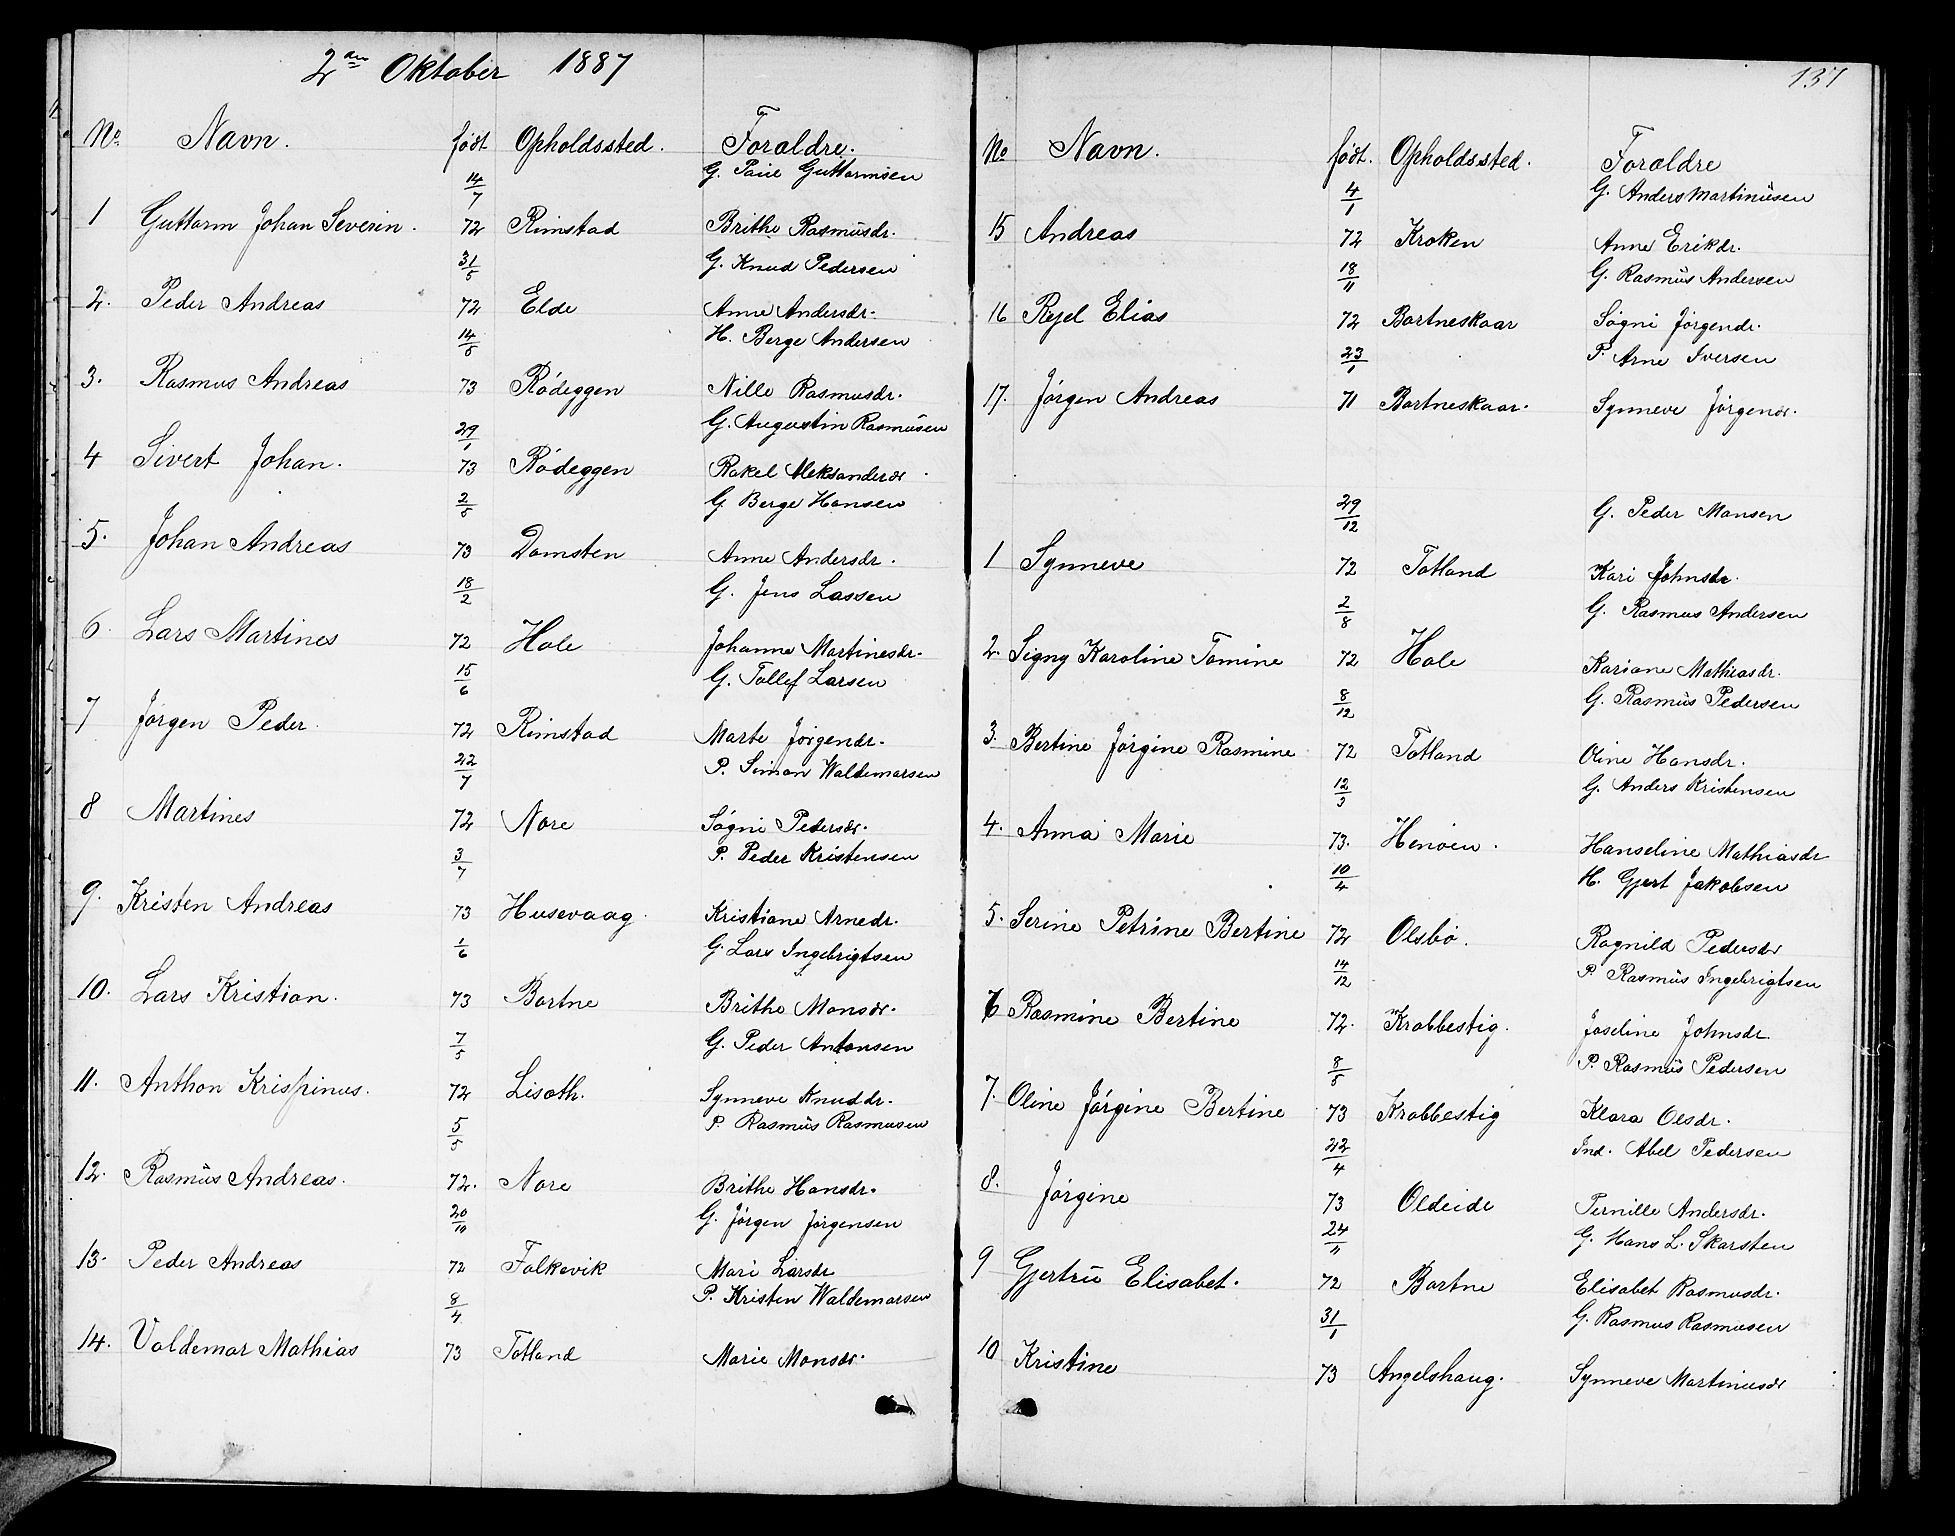 2den Oktober 1887
No. Navn. født Opholdssted. Forældre.
14/7 G. Paul Guttormsen
1 Guttorm Johan Severin. 72 Rimstad Brithe Rasmusdr.
31/5 G. Knud Pedersen
2. Peder Andreas 72 Elde Anne Andersdr.
14/5 H. Berge Andersen
3. Rasmus Andreas 73 Rödeggen Nille Rasmusdr.
29/1 G. Augustin Rasmusen
4 Sivert Johan. 73 Rödeggen Rakel Aleksanderdr
2/5 G. Berge Hansen
5. Johan Andreas 73 Domsten Anne Andersdr.
18/2 G. Jens Lassen
6. Lars Martines 72 Hole Johanne Martinesdr.
15/6 G. Tollef Larsen
7 Jörgen Peder. 72 Rimstad Marte Jörgendr.
22/7 P. Simon Waldemarsen
8 Martines 72 Nore Sögni Pedersdr.
3/7 P. Peder Kristensen
9. Kristen Andreas 73 Husevaag. Kristiane Arnedr.
1/6 G. Lars Ingebrigtsen
10. Lars Kristian. 73 Bortne Brithe Monsdr.
7/5 G. Peder Antonsen
11. Anthon Krispinus. 72 Lisæth. Synneve Knuddr.
5/5 P. Rasmus Rasmusen
12. Rasmus Andreas. 72. Nore Brithe Hansdr.
20/10 G. Jörgen Jörgensen
13. Peder Andreas 72 Falkevik Mari Larsdr
8/4 P. Kristen Waldemarsen
14. Valdemar Mathias 73 Totland Marie Monsdr.
137
No Navn. født. Opholdssted. Forældre
4/1 G. Anders Martinusen
15 Andreas 72 Kroken Anne Erikdr.
18/11 G. Rasmus Andersen
16 Rejel Elias 72 Bortneskaar Sögni Jörgendr.
23/1 P. Arne Iversen
17. Jörgen Andreas 71 Bortneskaar. Synneve Jörgendr.
29/12 G. Peder Monsen
1 Synneve 72 Totland Kari Johnsdr.
2/8 G. Rasmus Andersen
2. Signy Karoline Tomine 72 Hole Kariane Mathiasdr.
8/12 G. Rasmus Pedersen
3. Bertine Jörgine Rasmine 72 Totland Oline Hansdr.
12/3 G. Anders Kristensen
4. Anna Marie 73. Henöen. Hanseline Mathiasdr
10/4 H. Gjert Jakobsen
5. Serine Petrine Bertine 72 Olsbö. Ragnild Pedersdr
14/12 P. Rasmus Ingebrigtsen
6 Rasmine Bertine 72. Krabbestig. Joseline Johnsdr.
8/5 P. Rasmus Pedersen
7. Oline Jörgine Bertine 73 Krabbestig Klara Olsdr.
22/4 Ind. Abel Pedersen
8. Jörgine 73 Oldeide Pernille Andersdr.
24/11 G. Hans L. Skarsten
9 Gjertru Elisabet. 72 Bortne Elisabet Rasmusdr.
31/1 G. Rasmus Rasmusen
10 Kristine 73 Angelshaug. Synneve Martinusdr